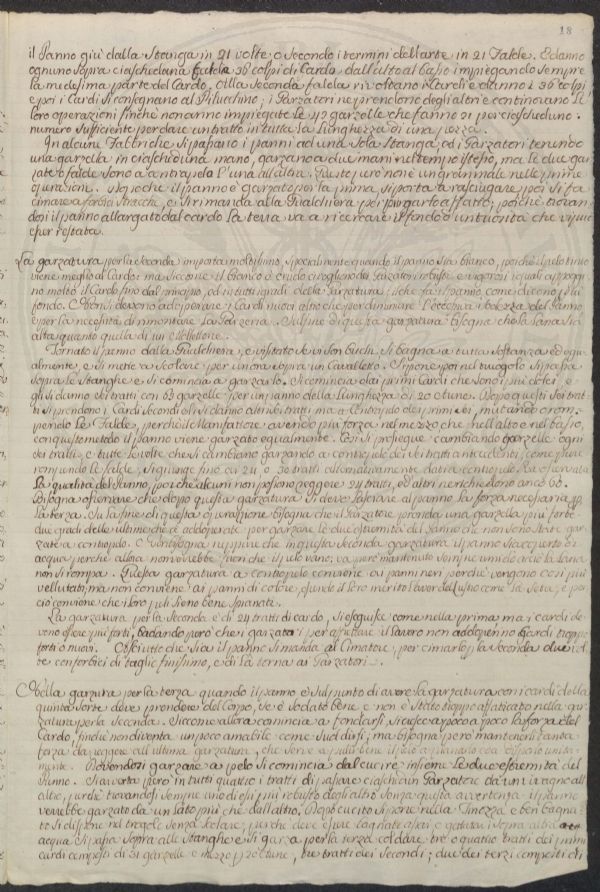 18
il Panno giù dalla Stanga in 21 volte o secondo i termini dell'arte in 21 Falde. E danno
ognuno sopra ciascheduna Falda 36 colpi di Cardo dall'alto al basso impiegando sempre
la medesima parte del Cardo. Alla seconda falda rivoltano i Cardi e danno i 36 colpi,
e poi i Cardi si consegnano al Pilucchino; i Garzatori ne prendono degli altri e continovano le
loro operazioni finchè non anno impiegate le 42 garzelle che fanno 21 per ciascheduno.
numero sufficiente per dare un tratto in tutta la lunghezza di una pezza.
In alcune Fabbriche si passano i panni ad una sola Stanga, ed i Garzatori tenendo
una garzella in ciascheduna mano, garzano a due mani nel tempo istesso, ma le due gar-
zate o falde sono a contrapelo l'una all'altra. Questo però non è un gran male nelle prime
operazioni. Dopo che il panno è garzato per la prima, si porta a rasciugare, poi si fa
cimare a forbici stracche, e si rimanda alla Gualchiera per purgarlo affatto, poichè trovan-
dosi il panno allargato dal cardo la terra va a ricercare il fondo e l'untuosità che vi può
esser restata.
La garzatura per la seconda importa moltissimo, specialmente quando il panno sia bianco, poichè il pelo tinto
viene meglio al Cardo: ma siccome il bianco è crudo ci vogliono dei Garzatori robusti e vigorosi i quali appoggi-
no molto il Cardo fino dal principio, ed in tutti i gradi della Garzatura: il che fa il panno come dicono più
fondo. E bensi devono adoperare i Cardi nuovi
e per la necessità di rimontare la Garzeria. Sul fine di questa garzatura bisogna che la lana sia
alta quanto quella di un
Tornato il panno dalla Gualchiera, e visitato se vi son buchi, si bagna a tutta sostanza ed egu-
almente, e si mette a scolare per un'ora sopra un Cavalletto. Si pone poi nel truogolo, si passa
sopra le Stanghe e si comincia a garzarlo. Si comincia dai primi Cardi che sono i più deboli, e
gli si danno sei tratti con 63 garzelle per un panno della lunghezza di 20 Canne. Dopo questi sei trat-
ti si prendono i Cardi secondi e li si danno altri sei tratti ma a contropelo dei primi sei, mutando o rom-
pendo le Falde, perchè il Manifattore avendo più forza nel mezzo che nell'alto e nel basso,
con questo metodo il panno viene garzato egualmente. Così si prosiegue cambiando garzelle ogni
sei tratti, e tutte le volte che si cambiano garzando a contropelo dei sei tratti antecedenti, come pure
rompendo le falde, si giunge fino a 24 o 30 tratti alternativamente dati a contropelo
La qualità del Panno, poichè alcuni non possono reggere 24 tratti, ed altri ne richiedono anco 60.
Bisogna osservare che dopo questa garzatura si deve lasciare al panno la forza necessaria p.
la terza. Su la fine di questa operazione bisogna che il Garzatore prenda una garzella più forte
due gradi delle ultime che à adoperate per garzare le due estremità del Panno che non sono state gar-
zate a contropelo. È vantaggioso neppure che in questa seconda garzatura il panno sia coperto di
acqua perchè allora non verrebbe fuori che il pelo vano; va però mantenuto sempre umido acciò la lana
non si rompa. Questa garzatura a contropelo conviene ai panni neri perchè vengono così più
vellutati, ma non conviene ai panni di colore, essendo il loro merito l'aver del lustro come la Seta, e per
ciò conviene che i loro peli sieno bene spianati.
La garzatura per la seconda è di 24 tratti di cardo, si eseguisce come nella prima, ma i cardi de-
vono essere più forti, badando però che i garzatori per affrettare il lavoro non adoprino Cardi troppo
forti o nuovi. Asciutto che sia il panno si manda al Cimatore, per cimarlo la seconda due vol-
te con forbici di taglio finissimo, e di là torna ai Garzatori.
Nella garzura per la terza quando il panno è sul punto di avere la garzatura con i cardi della
quinta sorte deve prendere del Corpo, se è sodato bene e non è stato troppo affaticato nella gar-
zatura per la seconda. Siccome allora comincia a fondarsi, si cresce a poco a poco la forza del
Cardo, finchè non diventa un poco amabile come suol dirsi; ma bisogna però mantenerli tanta
forza da reggere all'ultima garzatura, che serve a pulir bene il pelo e spianarlo
mente. Dovendosi garzare a pelo si comincia dal cucire insieme le due estremità del
Panno. Si avverta però in tutti quattro i tratti di passare ciaschedun Garzatore da un vivagno all'
altro, perchè trovandosi sempre uno di essi più robusto degli altri senza questa avvertenza il panno
verrebbe garzato da un lato più che dall'altro. Dopo cucito si pone nella Tinozza e ben bagna-
to si dispone nel truogolo senza scolare, perchè deve essere bagnato
acqua si passa sopra alle Stanghe e si garza per la terza col dare tre o quattro tratti dei primi
cardi composti di 31 garzelle e mezzo p. 20 Canne, tre tratti dei Secondi; due dei terzi composti di